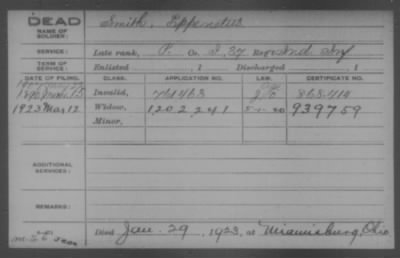 DEAD
NAME OF SOLDIER: Smith, Eppenetus
SERVICE: Late rank, P. Co. I, 37 Reg't Ind Inf
TERM OF SERVICE: Enlisted , 1 Discharged , 1
DATE OF FILING. CLASS. APPLICATION NO. LAW. CERTIFICATE NO.
Invalid, 761463 868.414
1923 Mar 12 Widow, 1202241 5-1-20 939759
Minor,
ADDITIONAL SERVICES:
REMARKS:
Died Jan. 29, 1923, at Miamisburg, Ohio